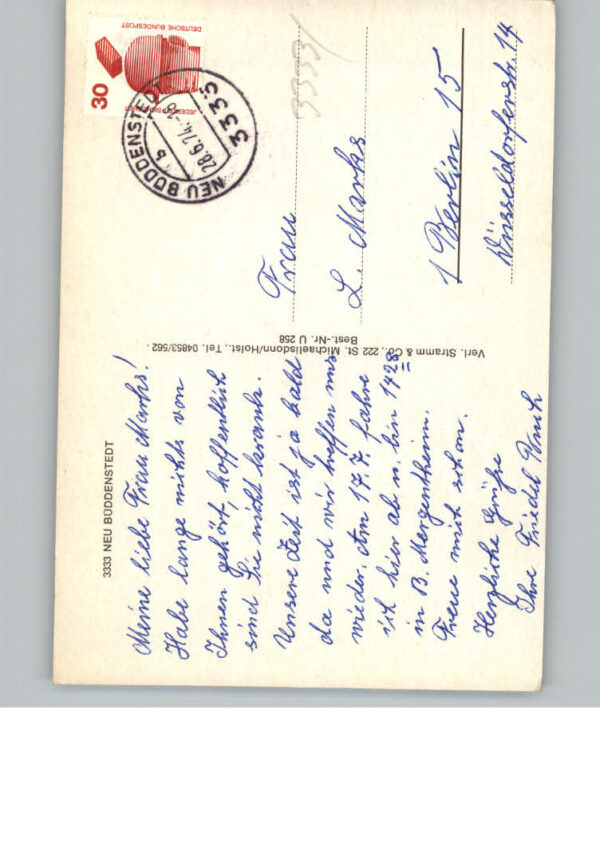 3333 NEU BÜDDENSTEDT
Meine liebe Frau Marks!
Habe lange nichts von
Ihnen gehört, hoffentlich
sind Sie nicht krank.
Unsere Zeit ist ja bald
da und wir treffen uns
wieder. Am 17.7. fahre
ich hier ab u. bin 14 28
in B. Mergentheim.
Freue mich schon.
Herzliche Grüße
Ihre Friedel
Verl. Stramm & Co., 222 St. Michaelisdonn/Holst., Tel. 04853/562
Best.-Nr. U 258
DEUTSCHE BUNDESPOST
30
NEU BÜDDENSTEDT
b
28.6.74
3335
3333
Frau
L. Marks
1 Berlin 15
Düsseldorferstr. 14